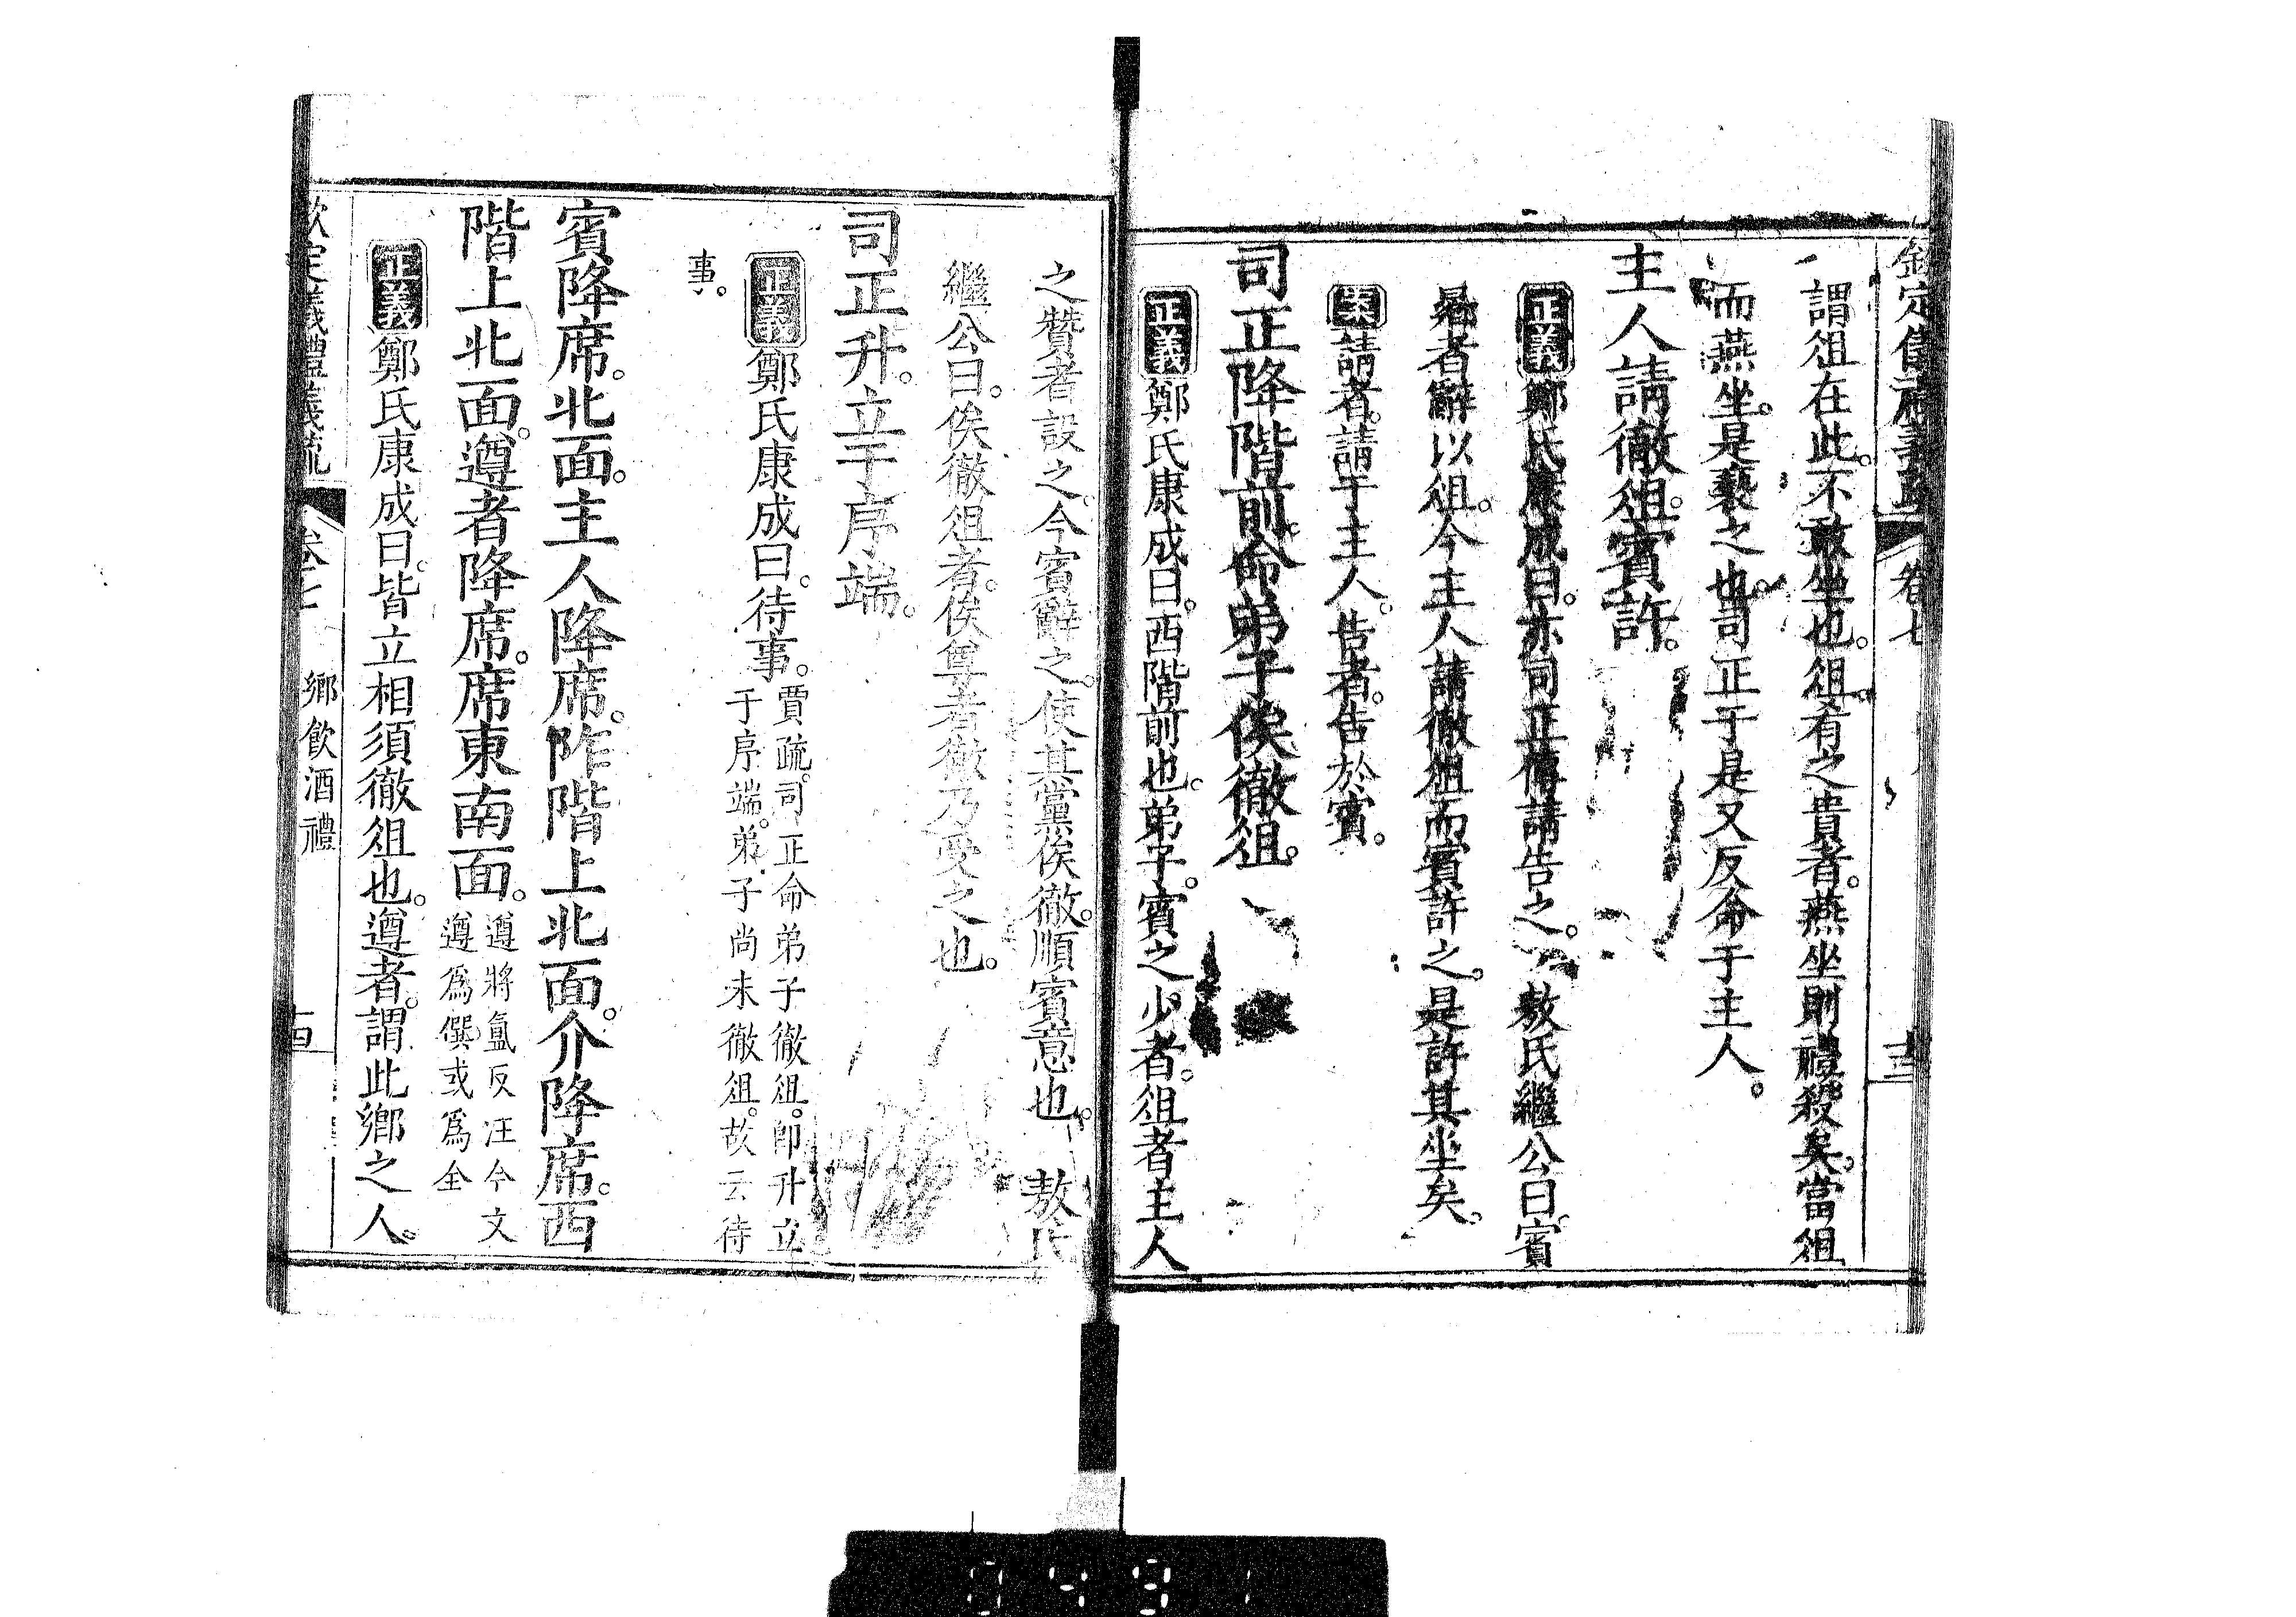 欽定儀禮義疏 卷七 十三
謂俎在此。不敢坐也。俎。肴之貴者。燕坐則禮殺矣。當俎
而燕坐。是褻之也。司正于是又反命于主人。
主人請徹俎。賓許。
正義鄭氏康成曰。亦司正傳請告之。 敖氏繼公曰。賓
曏者辭以俎。今主人請徹俎而賓許之。是許其坐矣。
案請者。請于主人。告者。告於賓。
司正降階前。命弟子俟徹俎。
正義鄭氏康成曰。西階前也。弟子。賓之少者。俎者主人
之贊者設之。今賓辭之。使其黨俟徹。順賓意也。 敖氏
繼公曰。俟徹俎者。俟尊者徹乃受之也。
司正升。立于序端。
正義鄭氏康成曰。待事。賈疏。司正命弟子徹俎。卽升立
于序端。弟子尚未徹俎。故云待
事。
賓降席。北面。主人降席。阼階上北面。介降席。西
階上北面。遵者降席。席東南面。遵將氳反注今文
遵爲僎或爲全
正義鄭氏康成曰。皆立相須徹俎也。遵者。謂此鄉之人。
欽定儀禮義疏 卷七 鄉飮酒禮 十四
0491